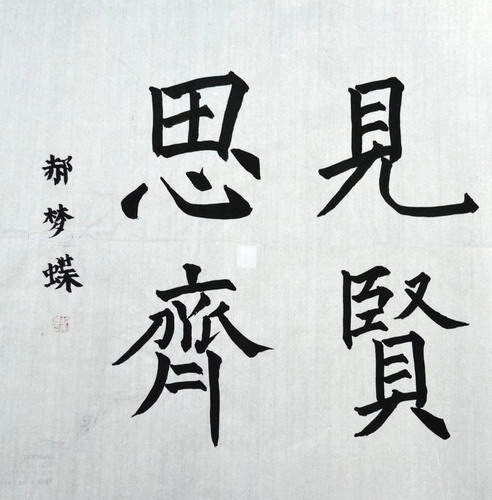 見賢
思齊
郝梦蝶